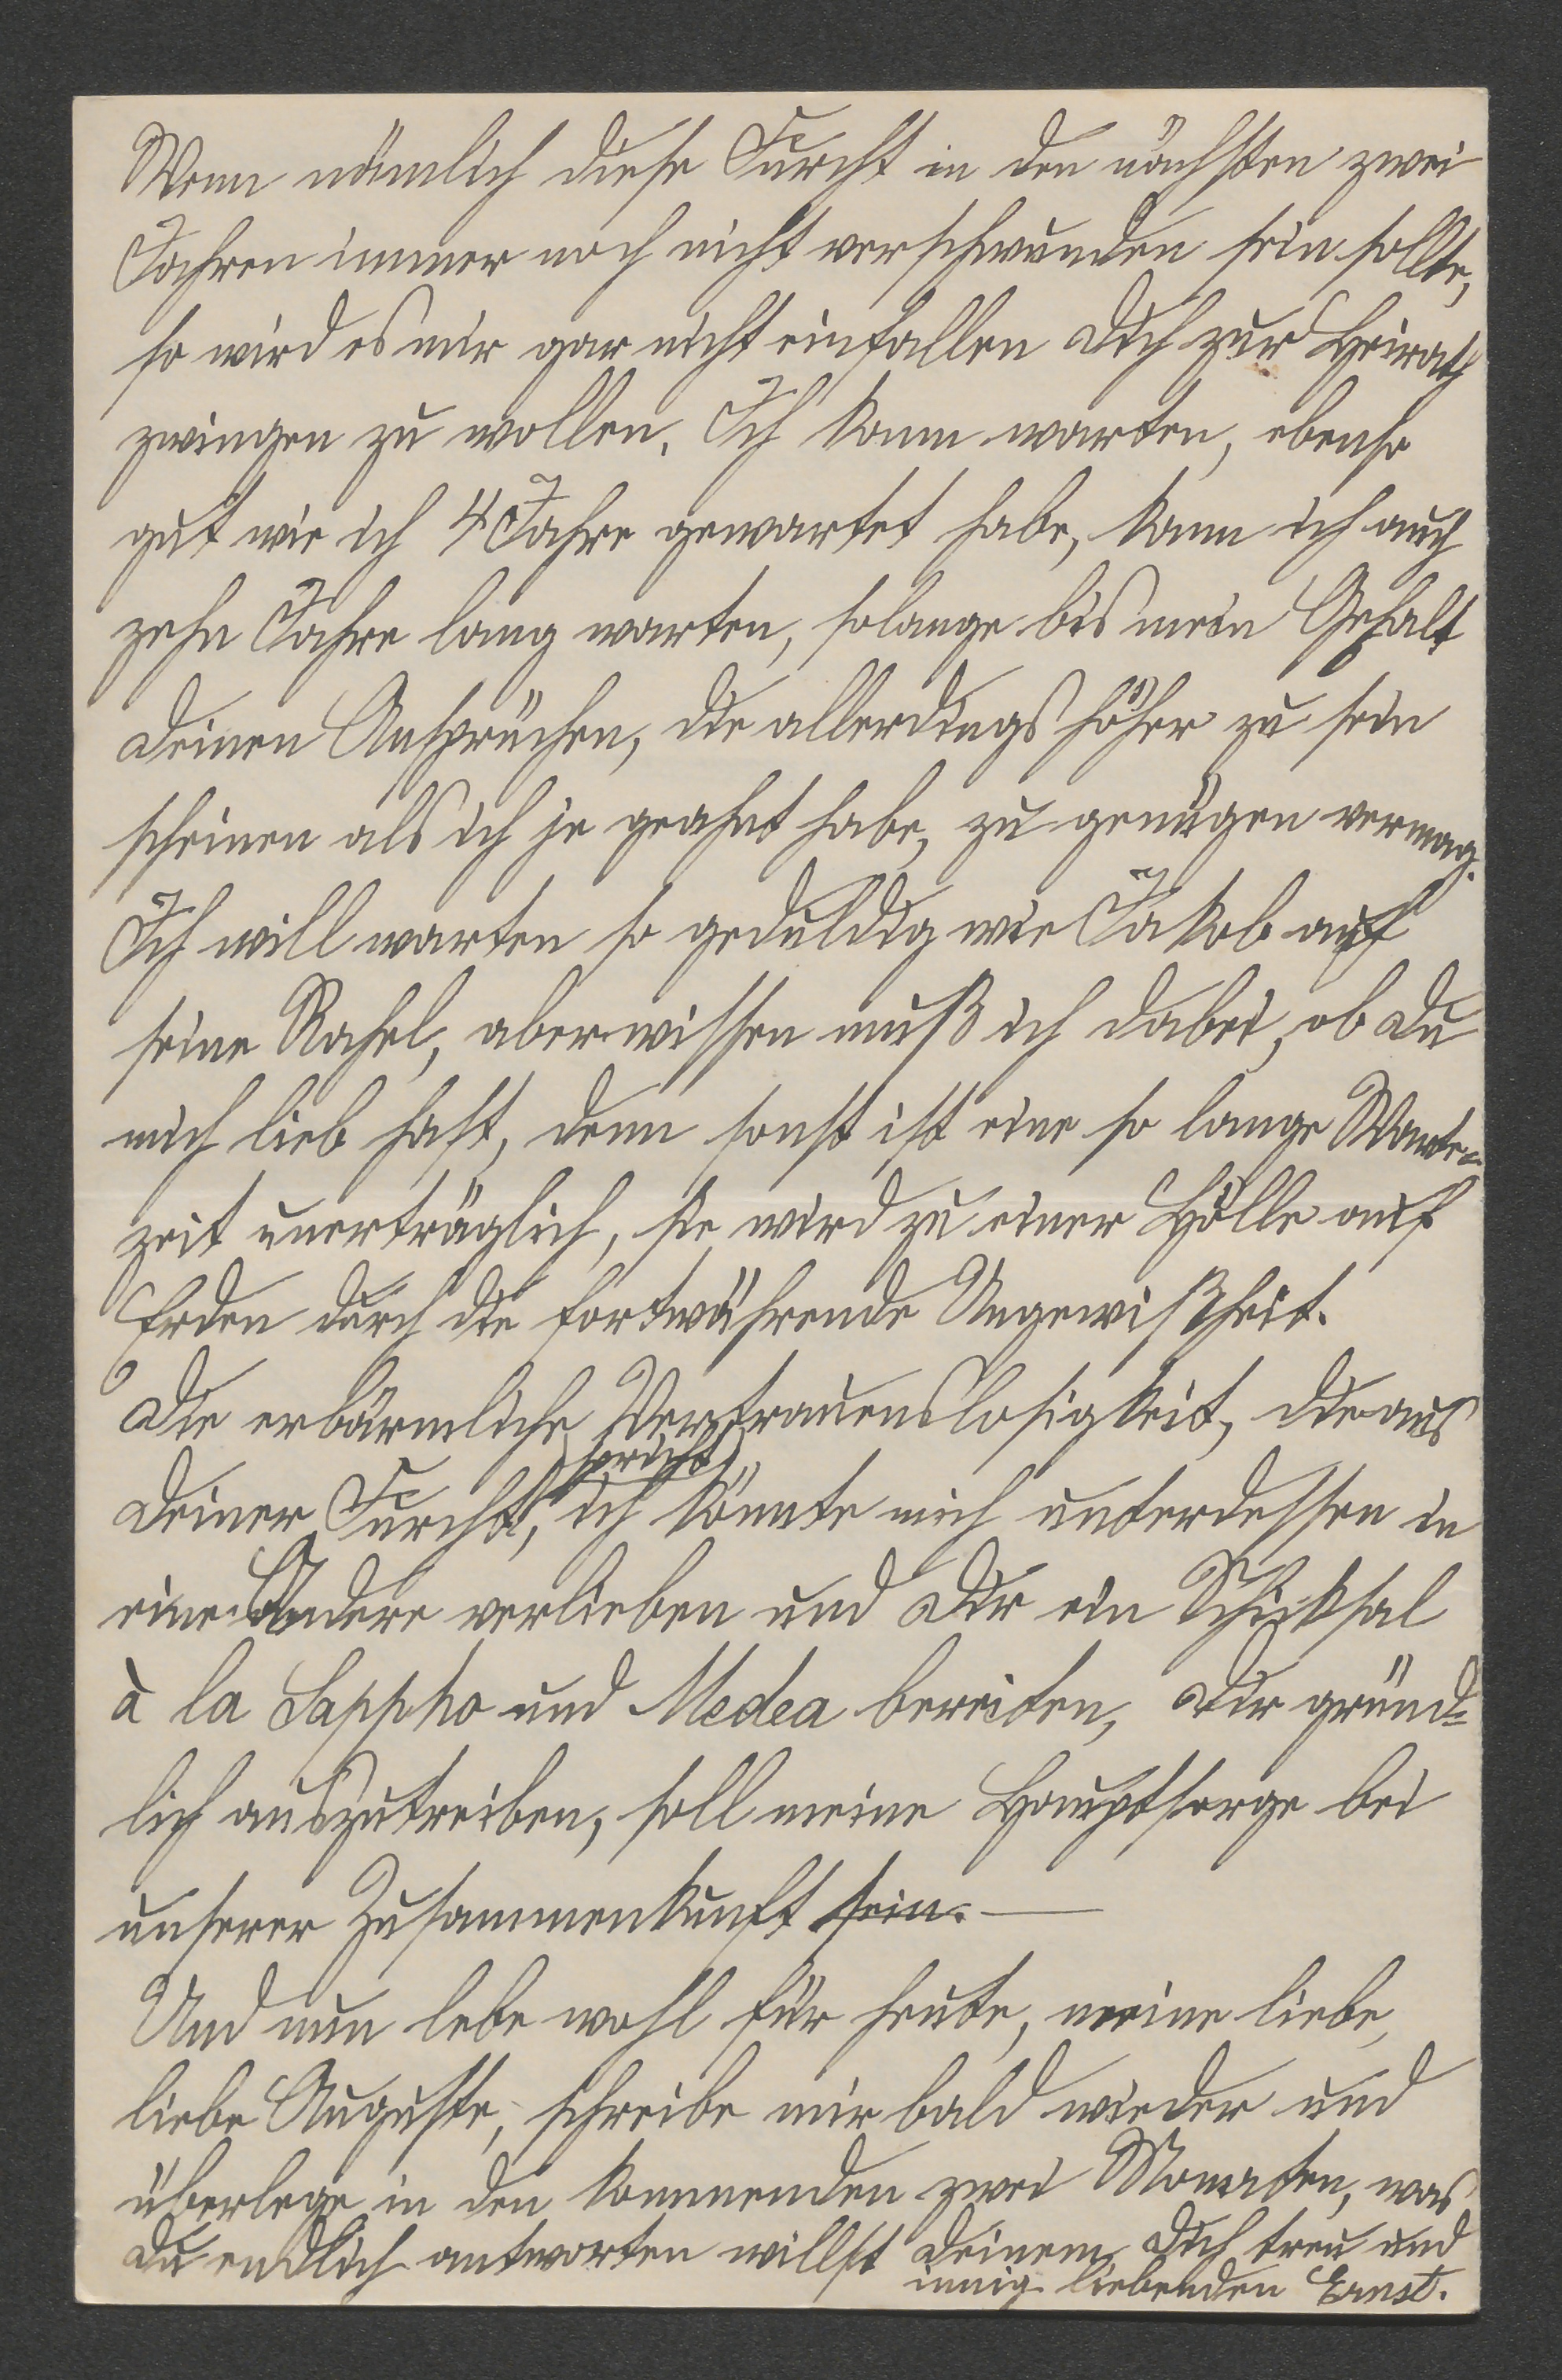 Wenn nämlich diese Furcht in den nächsten zwei
Jahren immer noch nicht verschwunden sein sollte,
so wird es mir gar nicht einfallen Dich zur Heirath
zwingen zu wollen. Ich kann warten, ebenso
gut wie ich 4 Jahre gewartet habe, kann ich auch
zehn Jahre lang warten, solange bis mein Gehalt
Deinen Ansprüchen, die allerdings höher zu sein
scheinen als ich je geahnt habe, zu genügen vermag.
Ich will warten so geduldig wie Jakob auf
seine Rahel, aber wissen muß ich dabei, ob Du
mich lieb hast, denn sonst ist eine so lange Warte-
zeit unerträglich, sie wird zu einer Hölle auf
Erden durch die fortwährende Ungewißheit.
Die erbärmliche Vertrauenslosigkeit, die aus
spricht
Deiner Furcht, ich könnte mich unterdessen in
eine Andere verlieben und Dir ein Schicksal
à la Sappho und Medea bereiten, Dir gründ=
lich auszutreiben, soll meine Hauptsorge bei
unserer Zusammenkunft sein. —
Und nun lebe wohl für heute, meine liebe,
liebe Auguste, schreibe mir bald wieder und
überlege in den kommenden zwei Monaten, was
Du endlich antworten willst Deinem Dich treu und
innig liebenden Ernst.